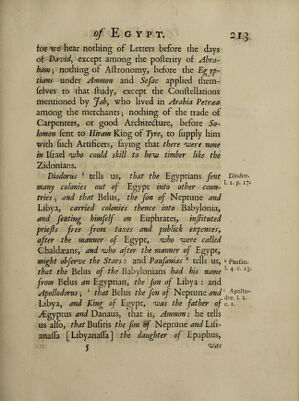 of EGYPT. 213
for we hear nothing of Letters before the days
of David, except among the posterity of Abra-
ham; nothing of Astronomy, before the Egyp-
tians under Ammon and Sesac applied them-
selves to that study, except the Constellations
mentioned by Job, who lived in Arabia Petræa
among the merchants; nothing of the trade of
Carpenters, or good Architecture, before So-
lomon sent to Hiram King of Tyre, to supply him
with such Artificers, saying that there were none
in Israel who could skill to hew timber like the
Zidonians.
Diodorus tells us, that the Egyptians sent Diodor.
many colonies out of Egypt into other coun- l. 1. p. 17.
tries; and that Belus, the son of Neptune and
Libya, carried colonies thence into Babylonia,
and seating himself on Euphrates, instituted
priests free from taxes and publick expences,
after the manner of Egypt, who were called
Chaldæans, and who after the manner of Egypt,
might observe the Stars: and Pausanias tells us, Pausan.
that the Belus of the Babylonians had his name l. 4. c. 23.
from Belus an Egyptian, the son of Libya: and
Apollodorus; that Belus the son of Neptune and Apollo-
Libya, and King of Egypt, was the father of dor. l. 2.
Ægyptus and Danaus, that is, Ammon: he tells c. 1.
us also, that Busiris the son of Neptune and Lisi-
anassa [Libyanassa] the daughter of Epaphus,
5 was